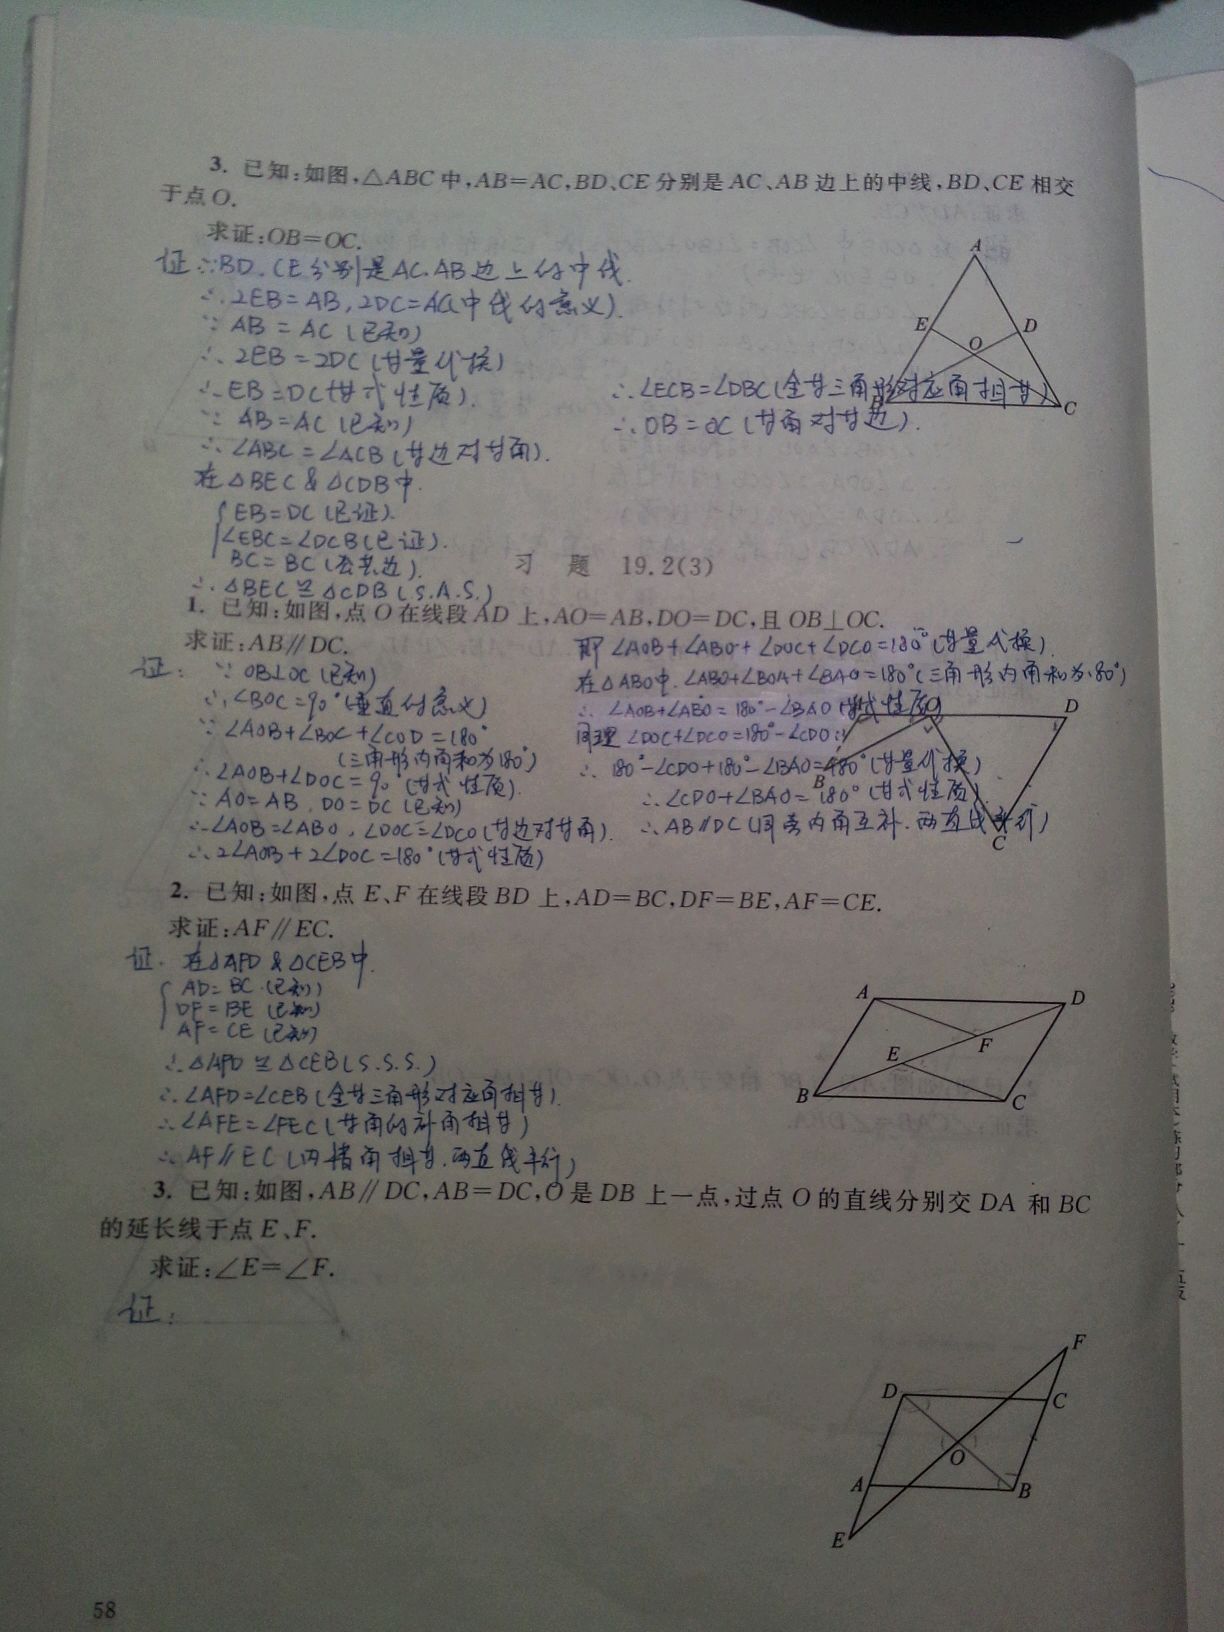 3. 已知:如图,△ABC中,AB=AC,BD、CE分别是AC、AB边上的中线,BD、CE相交
于点O.
求证:OB=OC.
证:∵BD、CE分别是AC、AB边上的中线.
∴2EB=AB,2DC=AC(中线的意义).
∵AB=AC(已知)
∴2EB=2DC(廿量代换)
∴EB=DC(廿式性质).
∵AB=AC(已知)
∴∠ABC=∠ACB(廿边对廿角).
在△BEC&△CDB中.
EB=DC(已证).
∠EBC=∠DCB(已证).
BC=BC(公共边).
∴△BEC≌△CDB(S.A.S.)
∴∠ECB=∠DBC(全廿三角形对应角相廿)
∴OB=OC(廿角对廿边).
A
E
D
O
B
C
习题 19.2(3)
1. 已知:如图,点O在线段AD上,AO=AB,DO=DC,且OB⊥OC.
求证:AB∥DC.
证: ∵OB⊥OC(已知)
∴∠BOC=90°(垂直的意义)
∵∠AOB+∠BOC+∠COD=180°
(三角形内角和为180°)
∴∠AOB+∠DOC=90°(廿式性质).
∵AO=AB,DO=DC(已知)
∴∠AOB=∠ABO,∠DOC=∠DCO(廿边对廿角).
∴2∠AOB+2∠DOC=180°(廿式性质)
即∠AOB+∠ABO+∠DOC+∠DCO=180°(廿量代换).
在△ABO中.∠ABO+∠BOA+∠BAO=180°(三角形内角和为180°)
∴∠AOB+∠ABO=180°-∠BAO(廿式性质)
同理∠DOC+∠DCO=180°-∠CDO
∴180°-∠CDO+180°-∠BAO=180°(廿量代换)
∴∠CDO+∠BAO=180°(廿式性质)
∴AB∥DC(同旁内角互补.两直线平行)
O
D
B
C
2. 已知:如图,点E、F在线段BD上,AD=BC,DF=BE,AF=CE.
求证:AF∥EC.
证. 在△AFD&△CEB中.
AD=BC(已知)
DF=BE(已知)
AF=CE(已知)
∴△AFD≌△CEB(S.S.S.)
∴∠AFD=∠CEB(全廿三角形对应角相廿).
∴∠AFE=∠FEC(廿角的补角相廿)
∴AF∥EC(内错角相廿.两直线平行)
A
D
E
F
B
C
3. 已知:如图,AB∥DC,AB=DC,O是DB上一点,过点O的直线分别交DA和BC
的延长线于点E、F.
求证:∠E=∠F.
证:
F
D
C
O
A
B
E
58